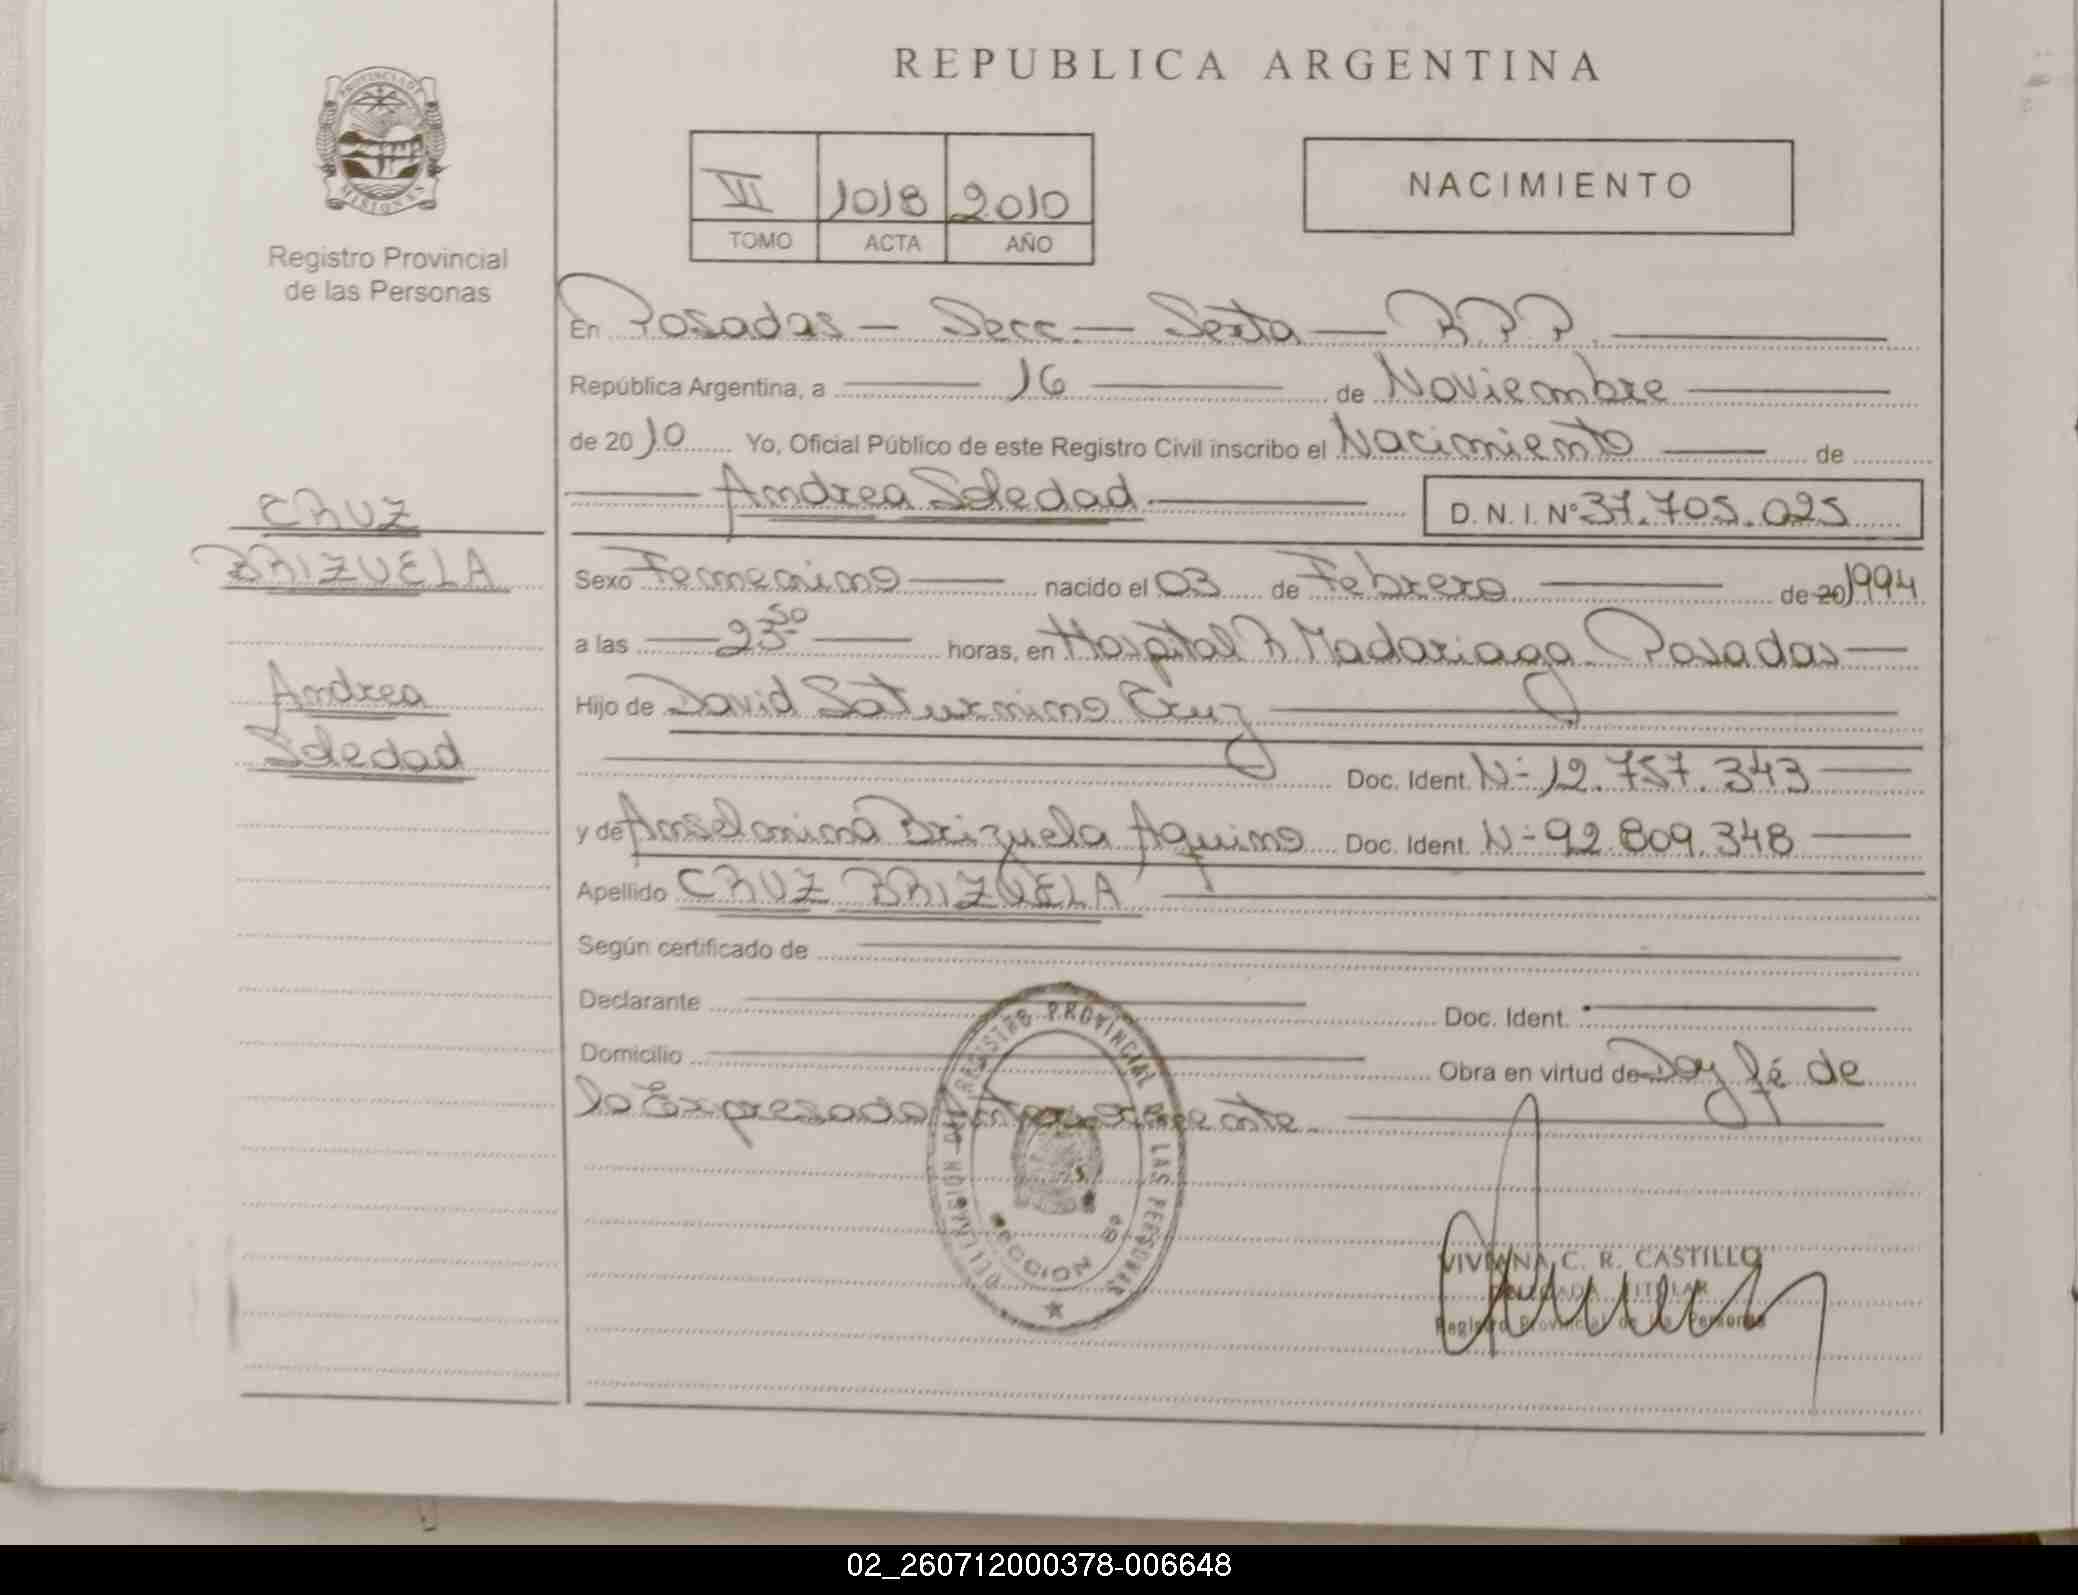 REPUBLICA ARGENTINA
PROVINCIA DE
MISIONES
Registro Provincial
de las Personas
VI 1018 2010
TOMO ACTA AÑO
NACIMIENTO
En Posadas — Secc. — Sexta — R.P.P.
República Argentina, a 16 de Noviembre
de 2010 Yo, Oficial Público de este Registro Civil inscribo el Nacimiento de
Andrea Soledad D.N.I. Nº 37.705.025
CRUZ
BRIZUELA
Andrea
Soledad
Sexo Femenino nacido el 03 de Febrero de 20 1994
a las 23 50 horas, en Hospital R Madariaga Posadas
Hijo de David Saturnino Cruz
Doc. Ident. Nº 12.757.343
y de Anselmina Brizuela Aquino Doc. Ident. Nº 92.809.348
Apellido CRUZ BRIZUELA
Según certificado de
Declarante Doc. Ident.
Domicilio Obra en virtud de Doy fé de
lo Expresado Anteriormente.
DELEGACION DEL REGISTRO PROVINCIAL DE LAS PERSONAS
SECCION 6ª
VIVIANA C. R. CASTILLO
DELEGADA TITULAR
Registro Provincial de las Personas
02_260712000378-006648